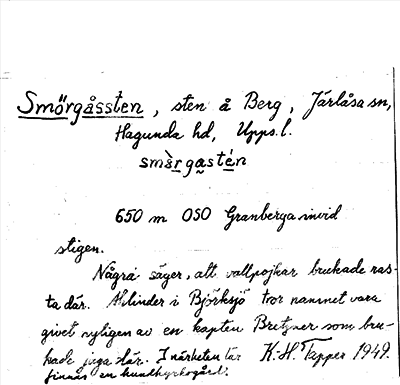 Smörgåssten, sten å Berg, Järlåsa sn,
Hagunda hd, Upps. l.
smèrgastén
650 m OSO Granberga invid
stigen.
Några säger, att vallpojkar brukade ras-
ta där. Melinder i Björksjö tror namnet vara
givet nyligen av en kapten Bretzner som bru-
kade jaga där. I närheten lär K.-H. Tapper 1949.
finnas en hundkyrkogård.